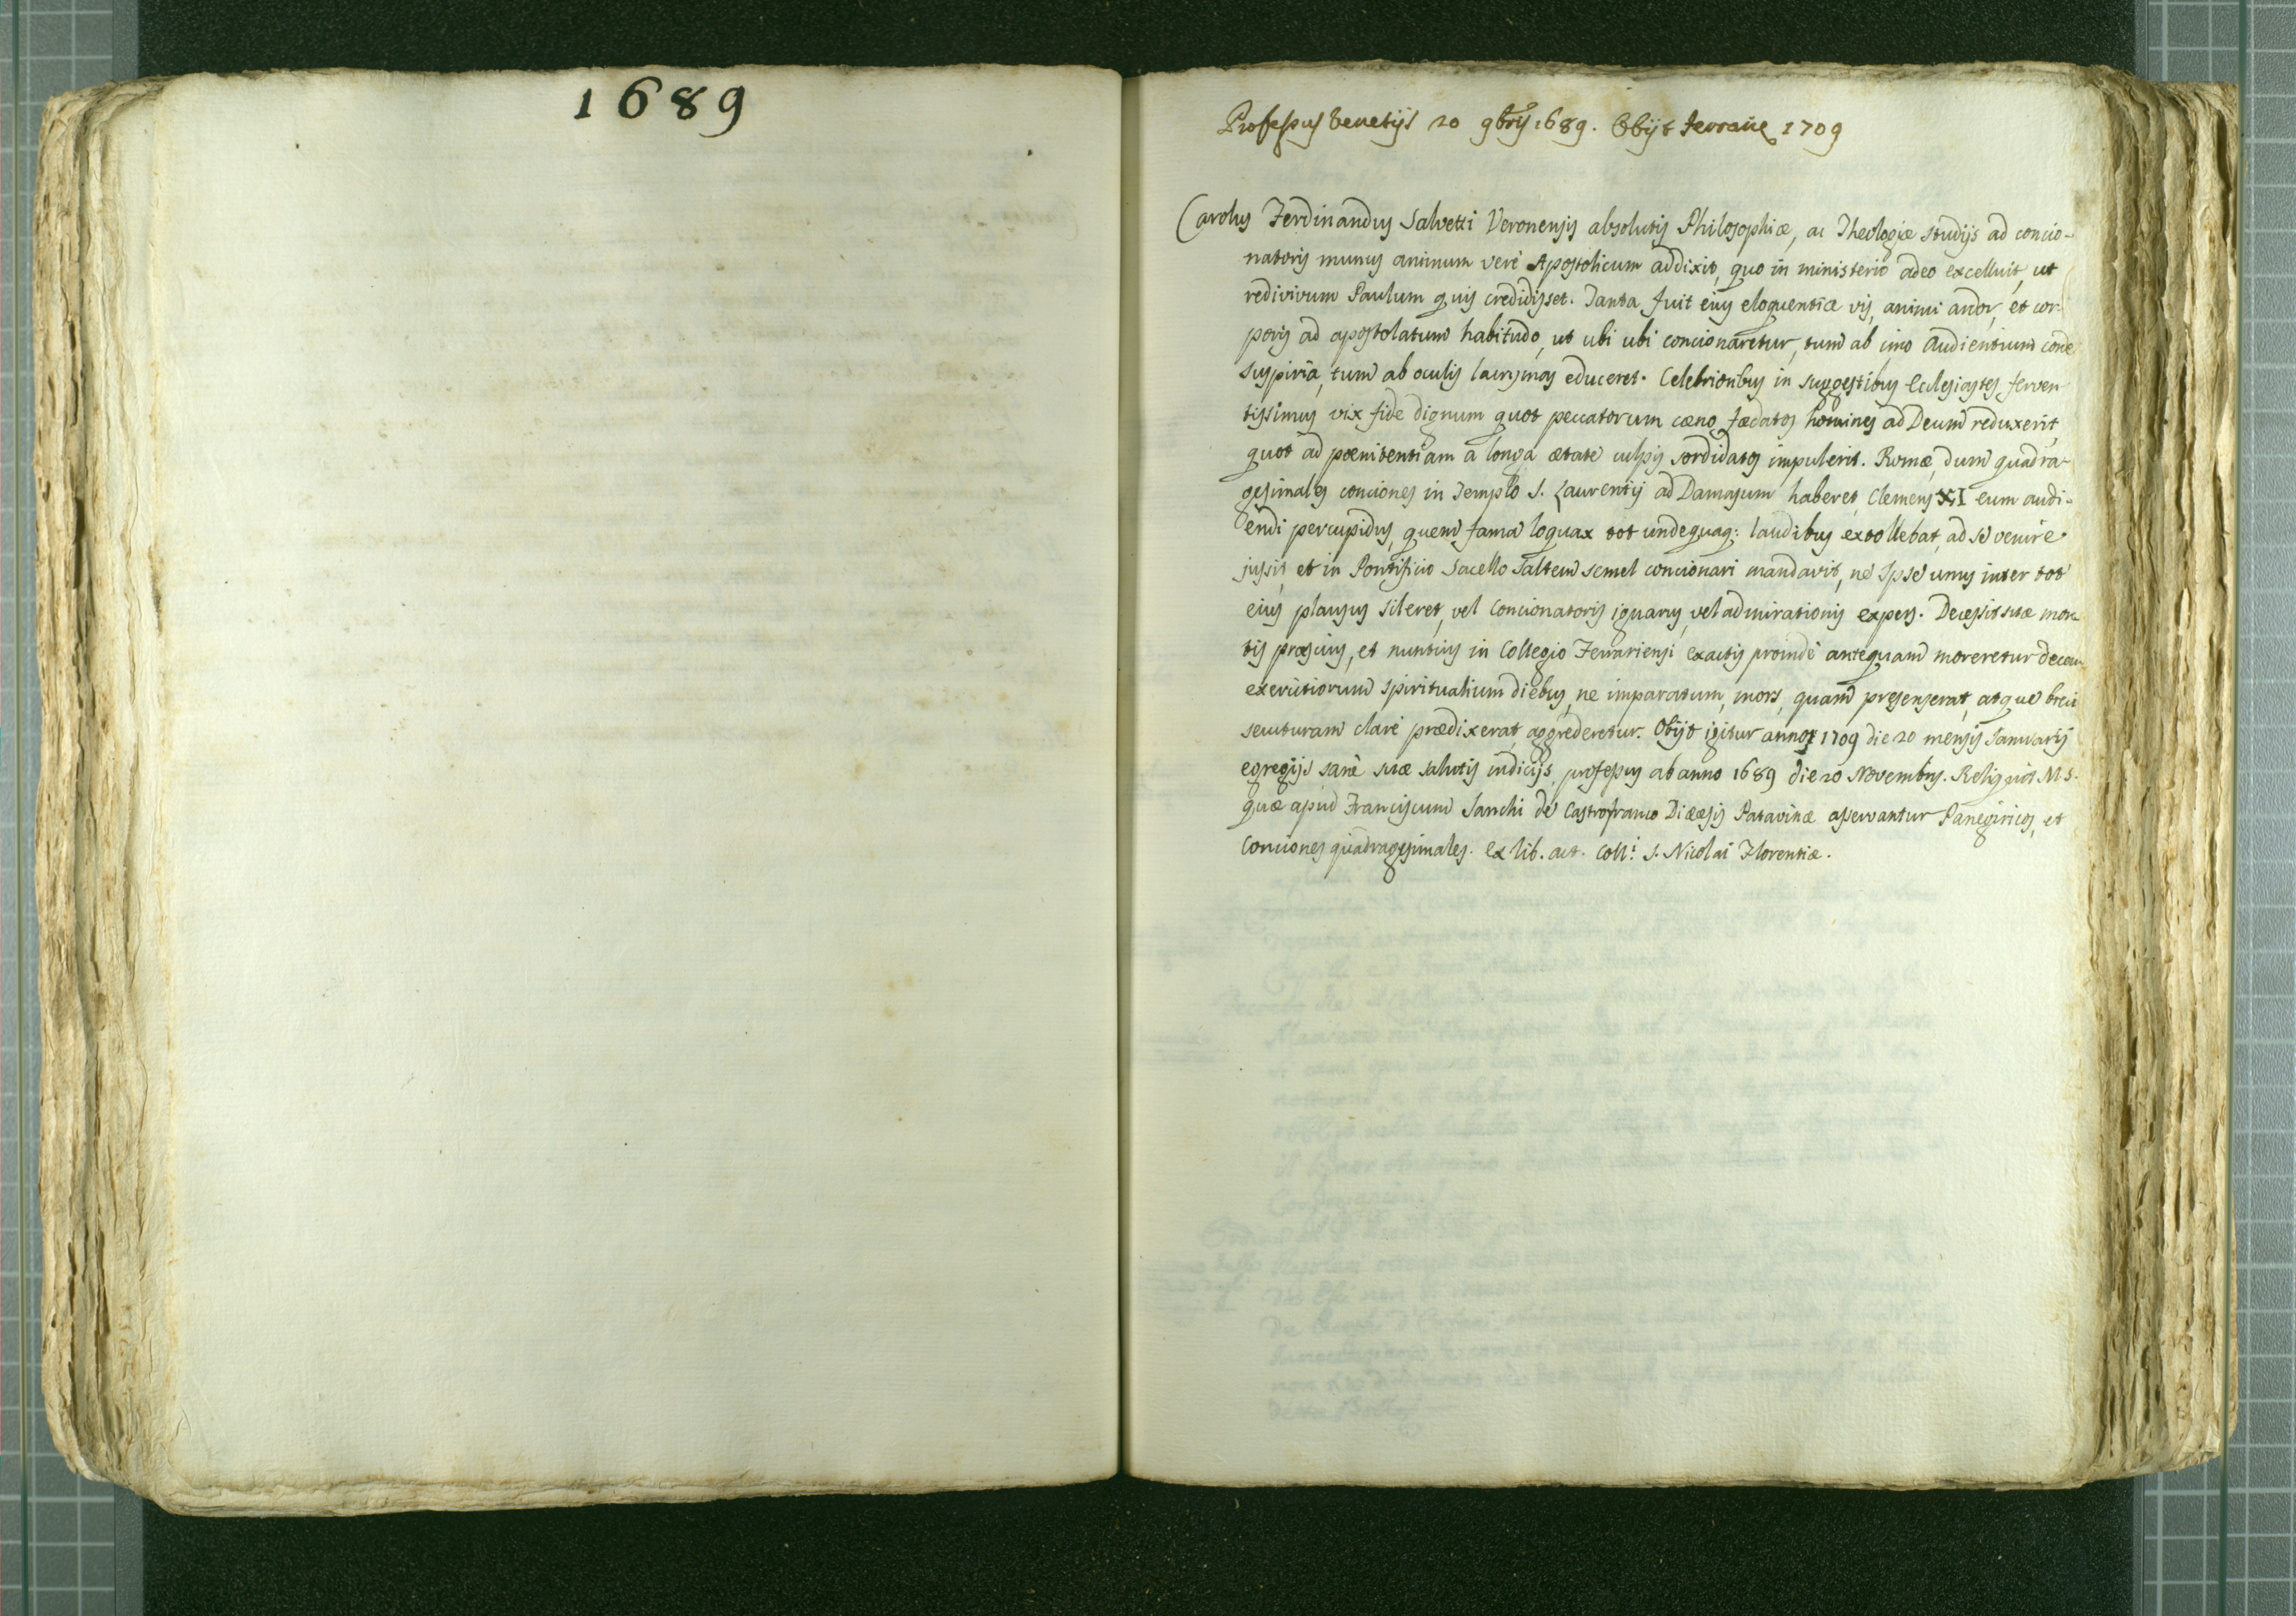 1689
Professus Venetijs 20 9bris 1689. Obijt Ferrariæ 1709
Carolus Ferdinandus Salvetti Veronensis absolutis Philosophiæ, ac Theologiæ studijs ad concio-
natoris munus animum verè Apostolicum addixit, quo in ministerio adeo excelluit, ut
redivivum Paulum quis credidisset. Tanta fuit eius eloquentiæ vis, animi ardor, et cor-
poris ad apostolatum habitudo, ut ubi ubi concionaretur, tum ab imo Audientium corde
suspiria, tum ab oculis lacrymas educeret. Celebrioribus in suggestibus Ecclesiastes ferven-
tissimus vix fide dignum quot peccatorum cæno fædatos homines ad Deum reduxerit,
quot ad pœnitentiam a longa ætate culpis sordidatos impulerit. Romæ, dum quadra-
gesimales conciones in Templo S. Laurentij ad Damasum haberet, Clemens XI eum audi-
endi percupidus, quem fama loquax tot undequaq: laudibus extollebat, ad se venire
jussit, et in Pontificio Sacello saltem semel concionari mandavit, ne Ipse unus inter tot
eius plausus sileret, vel Concionatoris ignarus, vel admirationis expers. Decessit suæ mor-
tis præscius, et nuntius in Collegio Ferrariensi exactis proinde antequam moreretur decem
exercitiorum spiritualium diebus, ne imparatum, mors, quam presenserat, atque brevi
secuturam clarè prædixerat, aggrederetur. Obijt igitur anno 1709 die 20 mensis Januarij
egregijs sanè suæ salutis indicijs professus ab anno 1689 die 20 Novembris. Reliquit M.S.
quæ apud Franciscum Sanchi de Castrofranco Diæcesis Patavinæ asservantur Panegiricos, et
Conciones quadragesimales. ex lib. act. Coll: S. Nicolai Florentiæ.